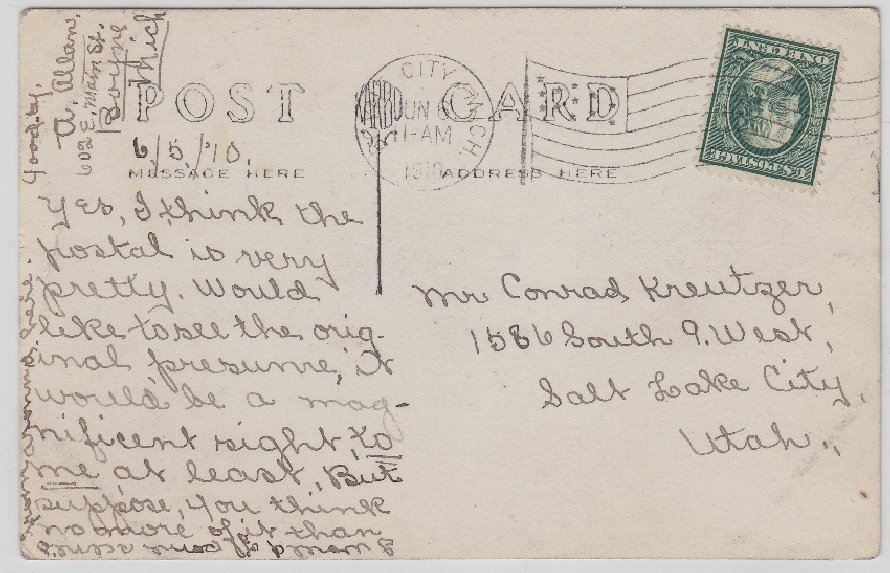 POST CARD
6/5/'10.
MESSAGE HERE
ADDRESS HERE
CITY
MICH.
JUN 6
11-AM
1910
Yes, I think the
postal is very
pretty. Would
like to see the orig-
inal presume, it
would be a mag-
nificent sight, to
me, at least, But
suppose, you think
no more of it than
Good by,
A. Allan.
602 E. Main St.
Boyne
Mich
Mr Conrad Kreutzer,
1586 South 9. West,
Salt Lake City,
Utah.,